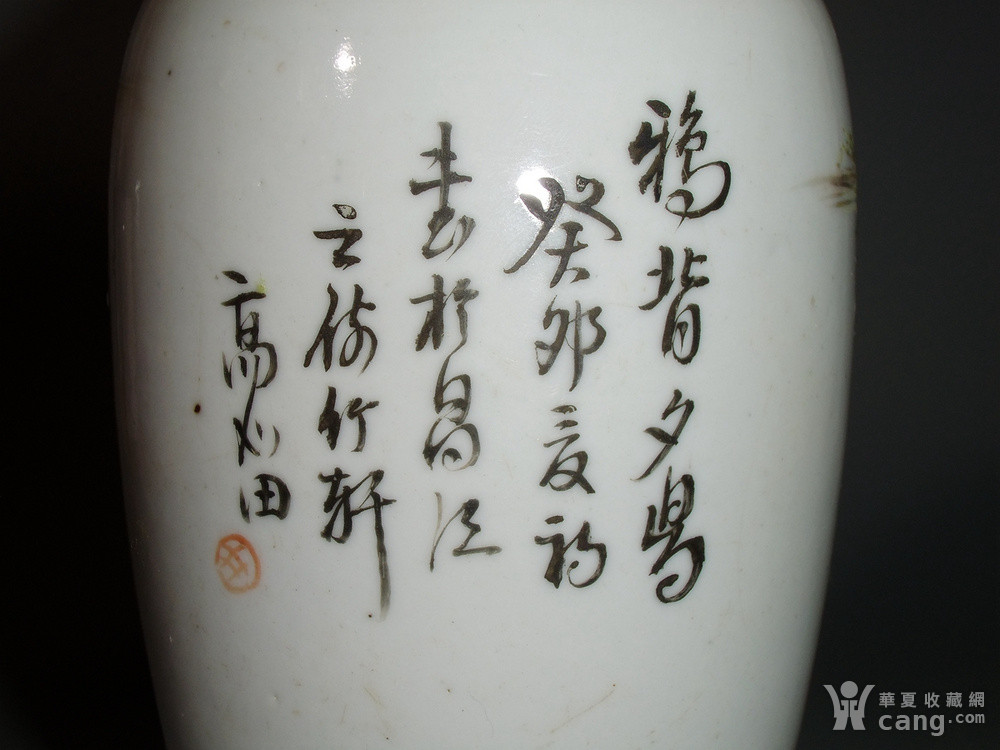 鴉背夕陽
癸卯夏初
畫於昌江
之倚竹軒
高心田
華夏收藏網
cang.com